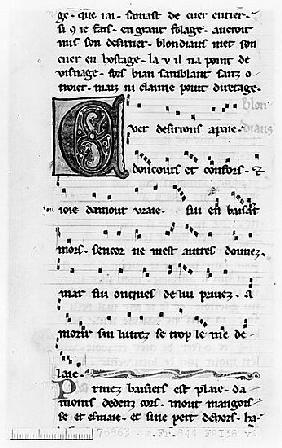 ge. que iai. saroit de cuer entier.
si ie fais. en grant folage. auroit
mis son desirrier. blondiaus met son
cuer en hostage. la v il na point de
visnage. fors biau samblant sanz o
troier. mais ni claime point
blon
diaus
Cuer desirrous apaie.
doucours et confors. &
ioie damour vraie. sui en baisant
mors. sencor ne mest autres donnez.
mar fui onques de lui privez. A
morir sui livrez se trop le me de
laie.
Premiers baisiers est plaie. da
mours dedenz cors. mout mangois
se et esmaie. et si ne pert dehors. ha